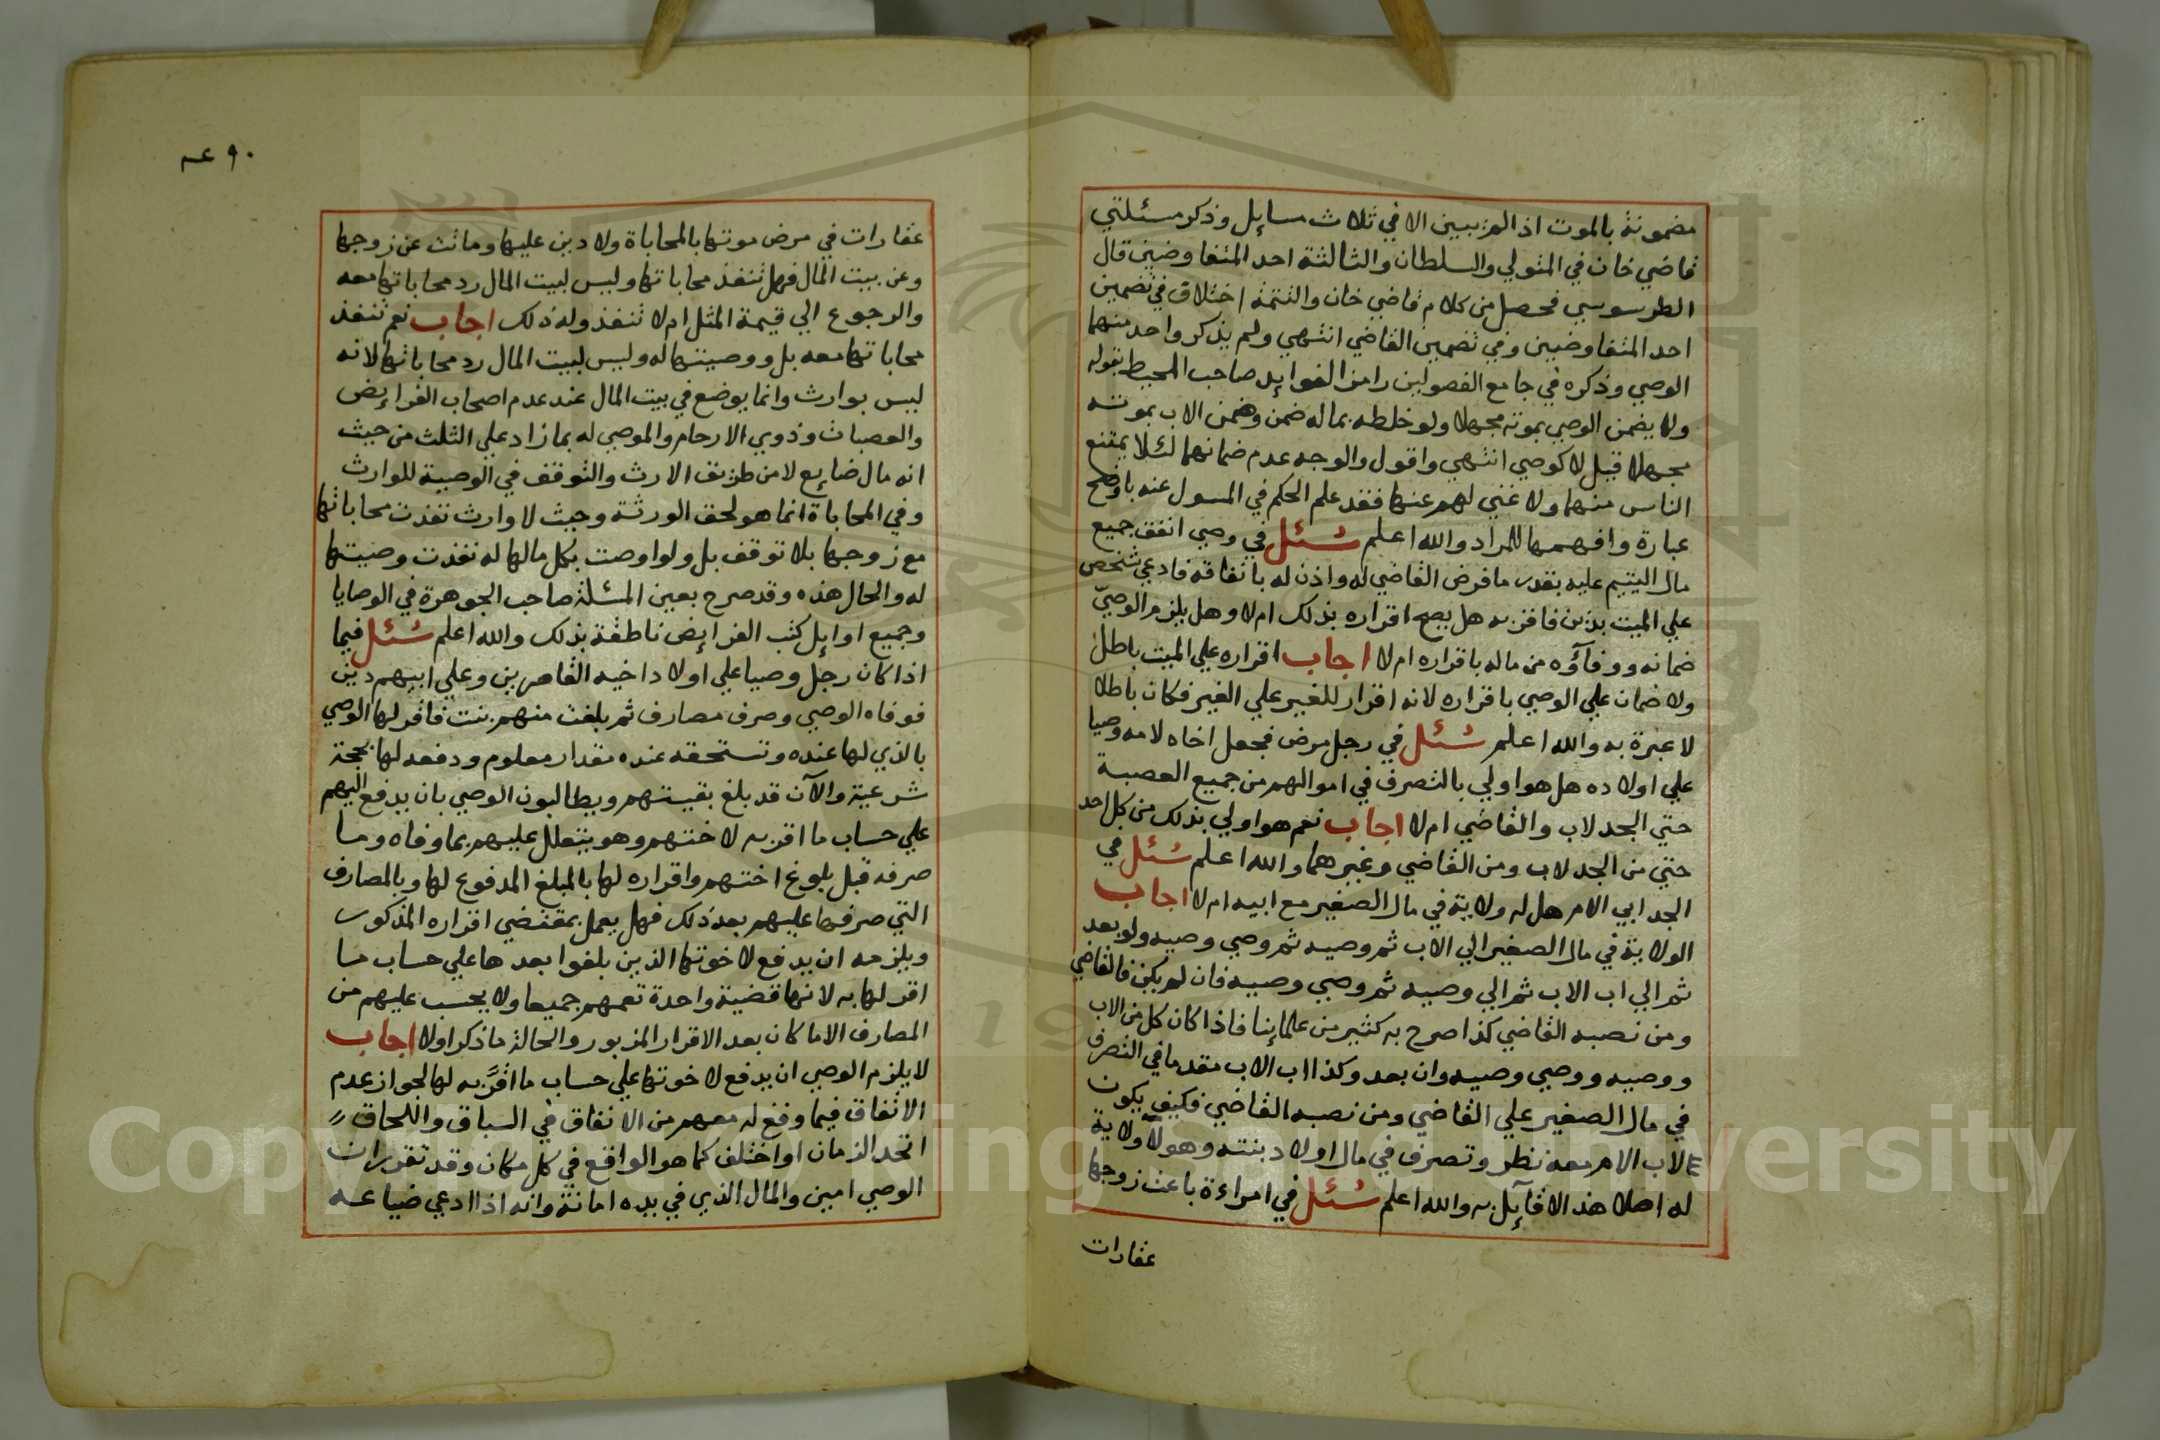 مضمونة بالموت اذا لم يبين الا في ثلاث مسايل وذكر مسئلتي
قاضي خان في المتولي والسلطان والثالثة احد المتفاوضين قال
الطرسوسي فحصل من كلام قاضي خان والتتمة اختلاق في تضمين
احد المتفاوضين وفي تضمين القاضي انتهي ولم يذكر واحد منهما
الوصي وذكره في جامع الفصولين رامز الفوايد صاحب المحيط بقوله
ولا يضمن الوصي بموته مجهلا ولو خلطه بماله ضمن وضمن الاب بموته
مجهلا قيل لا كوصي انتهي واقول والوجه عدم ضمانهما لئلا يمتنع
الناس منهما ولا غني لهم عنها فقد علم الحكم في المسول عنه باوضح
عبارة وافهمها للمراد والله اعلم سُئل في وصي انفق جميع
مال اليتيم عليه بقدر ما فرض القاضي له واذن له بانفاقه فادعي شخص
علي الميت بدين فاقر به هل يصح اقراره بذلك ام لا وهل يلزم الوصيّ
ضمانه ووفآؤه من ماله باقراره ام لا اجاب اقراره علي الميت باطل
ولا ضمان علي الوصي باقراره لانه اقرار للغير علي الغير فكان باطلا
لا عبرة به والله اعلم سُئل في رجل مرض فجعل اخاه لامه وصيا
علي اولاده هل هو اولي بالتصرف في اموالهم من جميع العصبة
حتي الجد لاب والقاضي ام لا اجاب نعم هو اولي بذلك من كل احد
حتي من الجد لاب ومن القاضي وغيرهما والله اعلم سُئل في
الجد ابي الام هل له ولاية في مال الصغير مع ابيه ام لا اجاب
الولاية في مال الصغير الي الاب ثم وصيه ثم وصي وصيه ولو بعد
ثم الي اب الاب ثم الي وصيه ثم وصي وصيه فان لم يكن فالقاضي
ومن نصبه القاضي كذا صرح به كثير من علماينا فاذا كان كل من الاب
ووصيه ووصي وصيه وان بعد وكذا اب الاب مقدما في التصرف
في مال الصغير علي القاضي ومن نصبه القاضي فكيف يكون
لاب الام معه نظر وتصرف في مال اولاد بنته وهو لا ولاية
له اصلا هذا لا قآيل به والله اعلم سُئل في امراءة باعت زوجها
عقارات
٩٠ عـم
عقارات في مرض موتها بالمحاباة ولا دين عليها وماتت عن زوجها
وعن بيت المال فهل تنفذ محاباتها وليس لبيت المال رد محاباتها معه
والرجوع الي قيمة المثل ام لا تنفذ وله ذلك اجاب نعم تنفذ
محاباتها معه بل ووصيتها له وليس لبيت المال رد محاباتها لانه
ليس بوارث وانما يوضع في بيت المال عند عدم اصحاب الفرايض
والعصبات وذوي الارحام والموصي له بما زاد علي الثلث من حيث
انه مال ضايع لا من طريق الارث والتوقف في الوصية للوارث
وفي المحاباة انما هو لحق الورثة وحيث لا وارث نفذت محاباتها
مع زوجها بلا توقف بل ولو اوصت بكل مالها له نفذت وصيتها
له والحال هذه وقد صرح بعين المسئلة صاحب الجوهرة في الوصايا
وجميع اوايل كتب الفرايض ناطقة بذلك والله اعلم سُئل فيما
اذا كان رجل وصيا علي اولاد اخيه القاصرين وعلي ابيهم دين
فوفاه الوصي وصرف مصارف ثم بلغت منهم بنت فاقر لها الوصي
بالذي لها عنده وتستحقه عنده مقدار معلوم ودفعه لها بحجة
شرعية والآن قد بلغ بقيتهم ويطالبون الوصي بان يدفع اليهم
علي حساب ما اقر به لاختهم وهو يتعلل عليهم بما وفاه وما
صرفه قبل بلوغ اختهم واقراره لها بالمبلغ المدفوع لها وبالمصارف
التي صرفها عليهم بعد ذلك فهل يعمل بمقتضي اقراره المذكور
ويلزمه ان يدفع لاخوتها الذين بلغوا بعدها علي حساب ما
اقر لها به لانها قضية واحدة تعمهم جميعا ولا يحسب عليهم من
المصارف الا ما كان بعد الاقرار المزبور والحالة ما ذكر اولا اجاب
لا يلزم الوصي ان يدفع لاخوتها علي حساب ما اقرّ به لها لجواز عدم
الاتفاق فيما وقع له معهم من الانفاق في السباق واللحاق
اتحد الزمان او اختلف كما هو الواقع في كل مكان وقد تقرر ان
الوصي امين والمال الذي في يده امانة وانه اذا ادعي ضياعه
Copyright © King Saud University